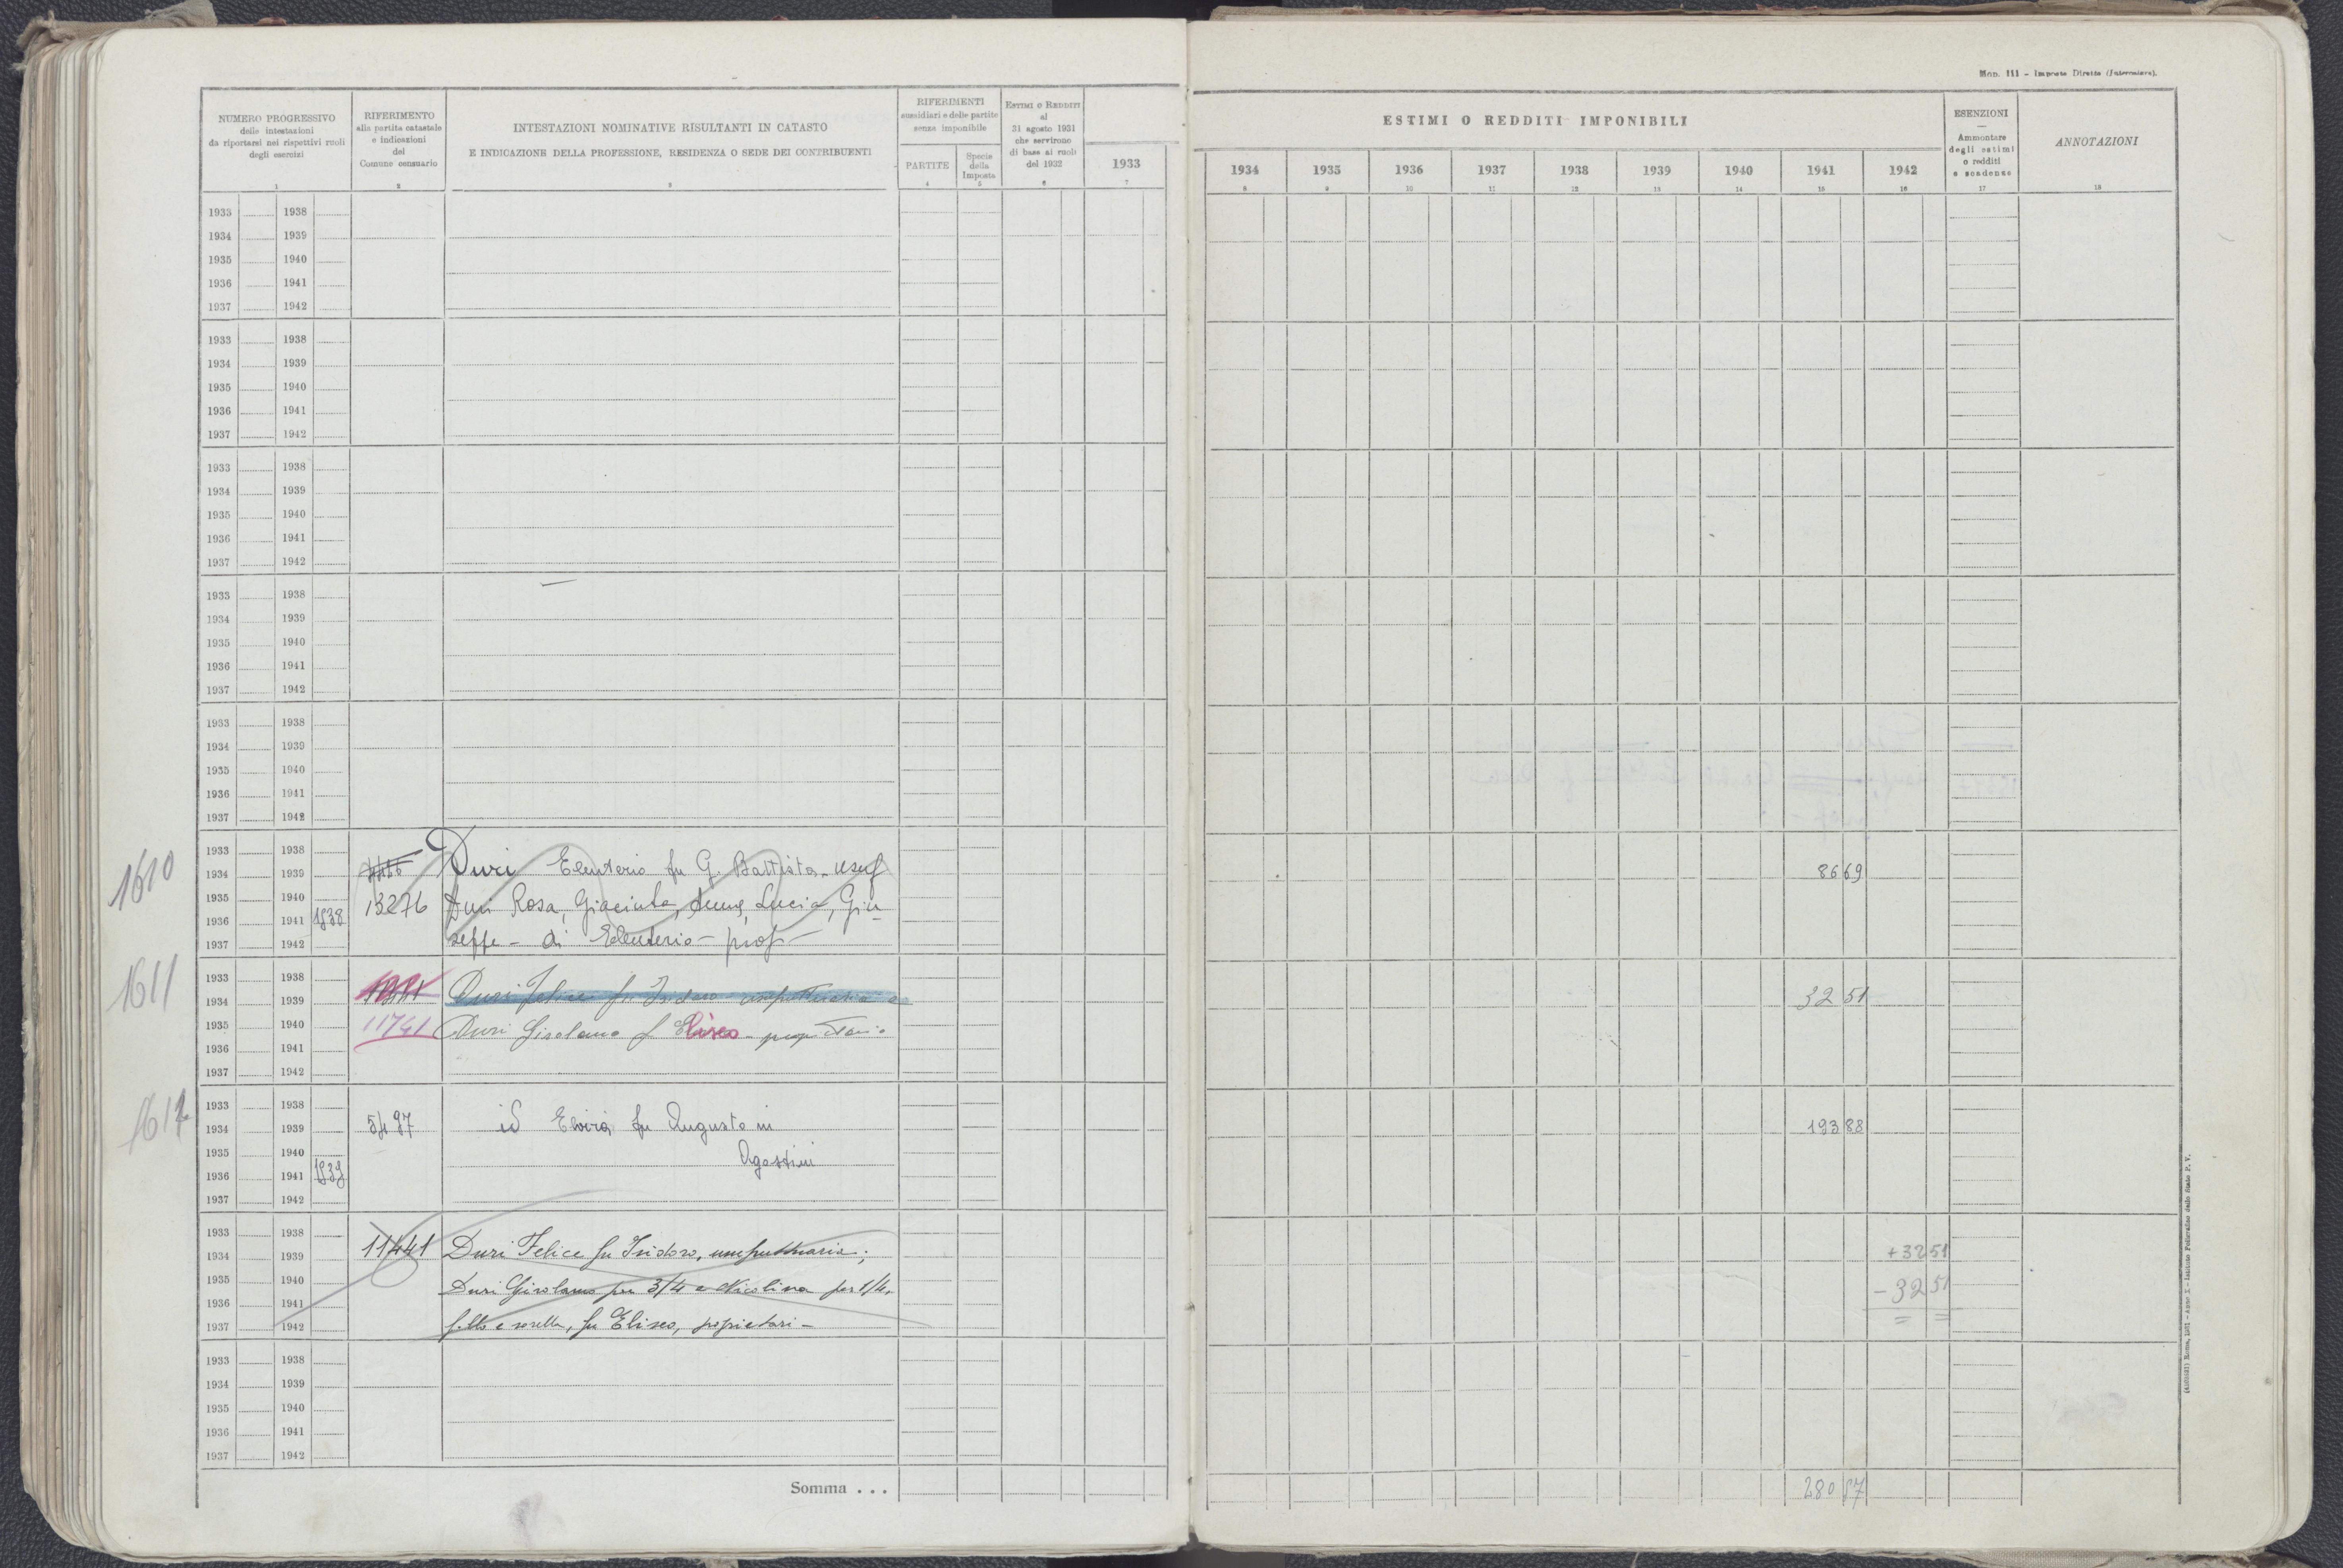 Mod. 111 - Imposte Dirette (Intercalare).
NUMERO PROGRESSIVO
delle intestazioni
da riportarsi nei rispettivi ruoli
degli esercizi
1
RIFERIMENTO
alla partita catastale
e indicazioni
del
Comune censuario
2
INTESTAZIONI NOMINATIVE RISULTANTI IN CATASTO
E INDICAZIONE DELLA PROFESSIONE, RESIDENZA O SEDE DEI CONTRIBUENTI
3
RIFERIMENTI
sussidiari e delle partite
senza imponibile
PARTITE
4
Specie
della
Imposta
5
ESTIMI O REDDITI
al
31 agosto 1931
che servirono
di base ai ruoli
del 1932
6
1933
7
ESTIMI O REDDITI IMPONIBILI
1934 1935 1936 1937 1938 1939 1940 1941 1942
8 9 10 11 12 13 14 15 16
ESENZIONI
Ammontare
degli estimi
o redditi
e scadenze
17
ANNOTAZIONI
18
1933 1938
1934 1939
1935 1940
1936 1941
1937 1942
1933 1938
1934 1939
1935 1940
1936 1941
1937 1942
1933 1938
1934 1939
1935 1940
1936 1941
1937 1942
1933 1938
1934 1939
1935 1940
1936 1941
1937 1942
1933 1938
1934 1939
1935 1940
1936 1941
1937 1942
1610
1933 1938
1934 1939 Duri Eleuterio fu G. Battista - usuf 8669
1935 1940 13276 Duri Rosa, Giacinta, Anna, Lucia, Giu
1936 1941 1838
1937 1942 seppe - di Eleuterio - prop -
1611
1933 1938
1934 1939 Duri Felice fu Isidoro usufruttuaria 3251
1935 1940 11741 Duri Girolamo f Eliseo - proprietario
1936 1941
1937 1942
1612
1933 1938
1934 1939 5497 id Elvira fu Augusto in 19388
1935 1940 Agostini
1936 1941 1839
1937 1942
1933 1938
1934 1939 11441 Duri Felice fu Isidoro, usufruttuaria; +3251
1935 1940 Duri Girolamo per 3/4 e Nicolina per 1/4, -3251
1936 1941 = =
1937 1942 f.llo e sorella, fu Eliseo, proprietari -
1933 1938
1934 1939
1935 1940
1936 1941
1937 1942
Somma . . .